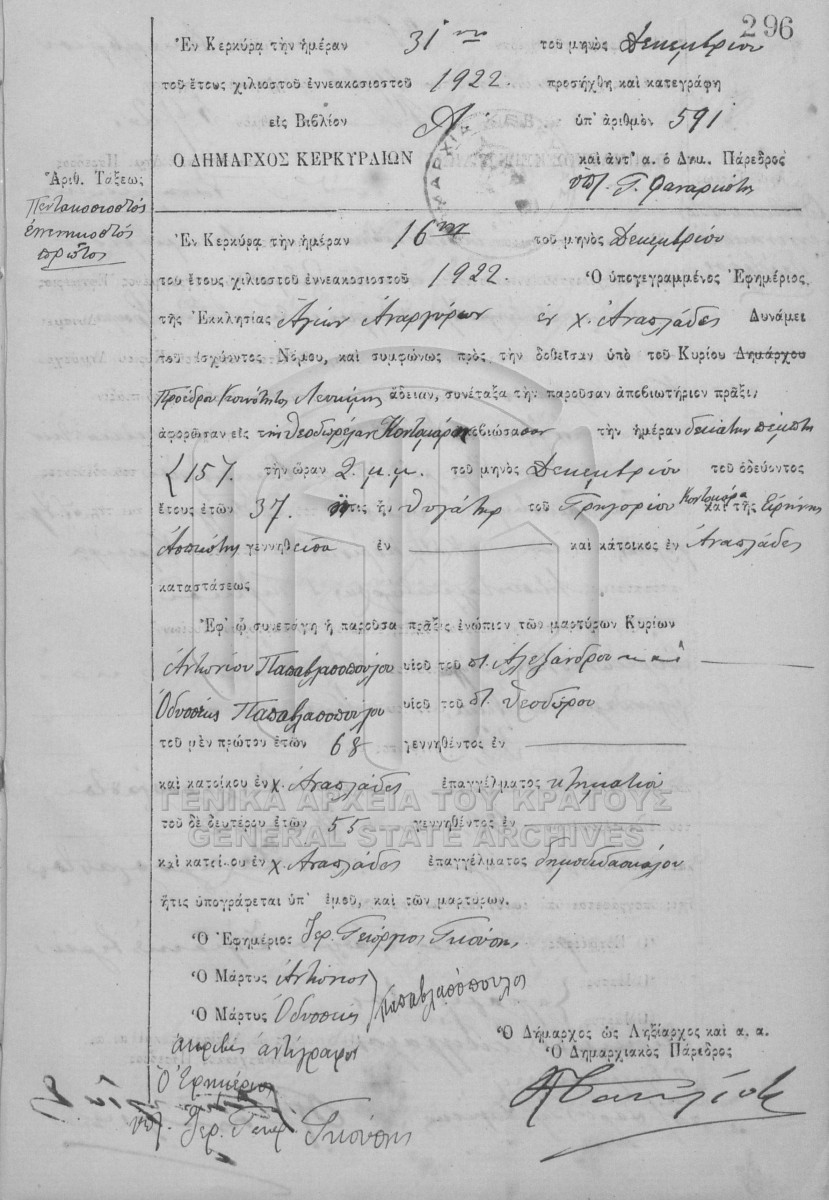 296
Ἐν Κερκύρᾳ τὴν ἡμέραν 31ην τοῦ μηνὸς Δεκεμβρίου
τοῦ ἔτους χιλιοστοῦ ἐννεακοσιοστοῦ 1922. προσήχθη καὶ κατεγράφη
εἰς Βιβλίον Α. ὑπ' ἀριθμὸν 591
Ο ΔΗΜΑΡΧΟΣ ΚΕΡΚΥΡΑΙΩΝ καὶ ἀντ' α. ὁ Δημ. Πάρεδρος
Ἀριθ. Τάξεως
Πεντακοσιοστός
ἐνενηκοστός
πρῶτος
Ἐν Κερκύρᾳ τὴν ἡμέραν 16ην τοῦ μηνὸς Δεκεμβρίου
τοῦ ἔτους χιλιοστοῦ ἐννεακοσιοστοῦ 1922. Ὁ ὑπογεγραμμένος Ἐφημέριος,
τῆς Ἐκκλησίας Ἁγίων Ἀναργύρων ἐν χ. Ἀναπλάδες Δυνάμει
τοῦ ἰσχύοντος Νόμου, καὶ συμφώνως πρὸς τὴν δοθεῖσαν ὑπὸ τοῦ Κυρίου Δημάρχου
Προέδρου Κοινότητος Λευκίμης ἄδειαν, συνέταξα τὴν παροῦσαν ἀποβιωτήριον πρᾶξιν
ἀφορῶσαν εἰς τὴν Θεοδωρέλαν Κοντομάρη ἀποβιώσασαν τὴν ἡμέραν δεκάτην πέμπτη
{157. τὴν ὥραν 2. μ.μ. τοῦ μηνὸς Δεκεμβρίου τοῦ ὁδεύοντος
ἔτους ἐτῶν 37. ἥτις ἦν θυγάτηρ τοῦ Γρηγορίου Κοντομάρη καὶ τῆς Εἰρήνης
γεννηθεῖσα ἐν καὶ κάτοικος ἐν Ἀναπλάδες
καταστάσεως
Ἐφ' ᾧ συνετάγη ἡ παροῦσα πρᾶξις ἐνώπιον τῶν μαρτύρων Κυρίων
Ἀντωνίου Παπαβλασοπούλου υἱοῦ τοῦ π. Ἀλεξάνδρου καὶ
Ὀδυσσέως Παπαβλασοπούλου υἱοῦ τοῦ π. Θεοδώρου
τοῦ μὲν πρώτου ἐτῶν 68 γεννηθέντος ἐν
καὶ κατοίκου ἐν χ. Ἀναπλάδες ἐπαγγέλματος κτηματίου
ΓΕΝΙΚΑ ΑΡΧΕΙΑ ΤΟΥ ΚΡΑΤΟΥΣ
τοῦ δὲ δευτέρου ἐτῶν 55 γεννηθέντος ἐν
GENERAL STATE ARCHIVES
καὶ κατοίκου ἐν χ. Ἀναπλάδες ἐπαγγέλματος δημοδιδασκάλου
ἥτις ὑπογράφεται ὑπ' ἐμοῦ, καὶ τῶν μαρτύρων.
Ὁ Ἐφημέριος Ἱερ. Γεώργιος Γκούσης
Ὁ Μάρτυς Ἀντώνιος
Ὁ Μάρτυς Ὀδυσσεὺς } Παπαβλασόπουλοι
Ὁ Δήμαρχος ὡς Ληξίαρχος καὶ α. α.
Ὁ Δημαρχιακὸς Πάρεδρος
ἀκριβὲς ἀντίγραφον
Ὁ Ἐφημέριος
Ἱερ. Γεώρ. Γκούσης